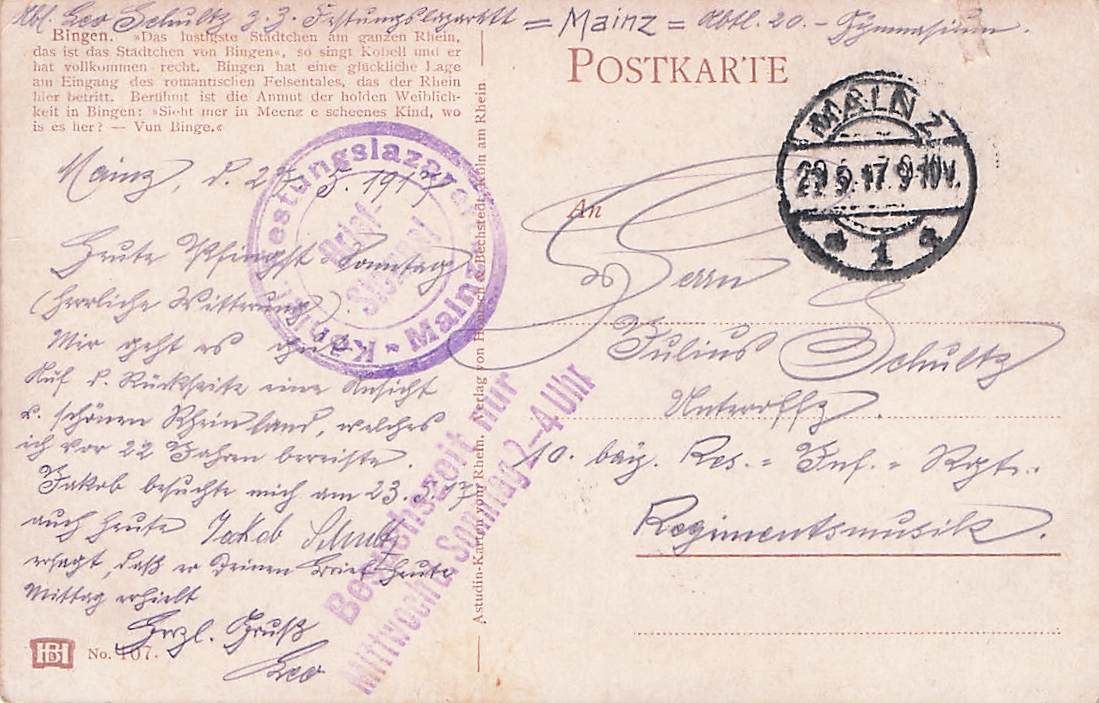 Abs. Leo Schultz z. Z. Festungslazarett = Mainz = Abtl. 20. - Gymnasium.
Bingen. »Das lustigste Städtchen am ganzen Rhein,
das ist das Städtchen von Bingen«, so singt Kobell und er
hat vollkommen recht. Bingen hat eine glückliche Lage
am Eingang des romantischen Felsentales, das der Rhein
hier betritt. Berühmt ist die Anmut der holden Weiblich-
keit in Bingen: »Sieht mer in Meenz e scheenes Kind, wo
is es her? — Vun Binge.«
Mainz, d. 5. 1917
Heute Pfingst-Sonntag
(herrliche Witterung).
Mir geht es
Auf d. Rückseite eine Ansicht
v. schönen Rheinland, welches
ich vor 22 Jahren bereiste.
Jakob besuchte mich am 23.
auch heute Jakob Schultz
erfragt, daß er Deinen Brief heute
Mittag erhielt
Herzl. Gruß
Leo
HB
No. 107.
Festungslazarett
Brief-
Stempel
Mainz
Besuchszeit nur
Mittwoch u. Sonntag 2-4 Uhr
Astudin-Karten vom Rhein. Verlag von & Bechstedt, Köln am Rhein
POSTKARTE
MAINZ
5.17.9-10V.
1
An
Herrn
Julius Schultz
Unteroffz.
10. bay. Res. = Inf. = Rgt.
Regimentsmusik.